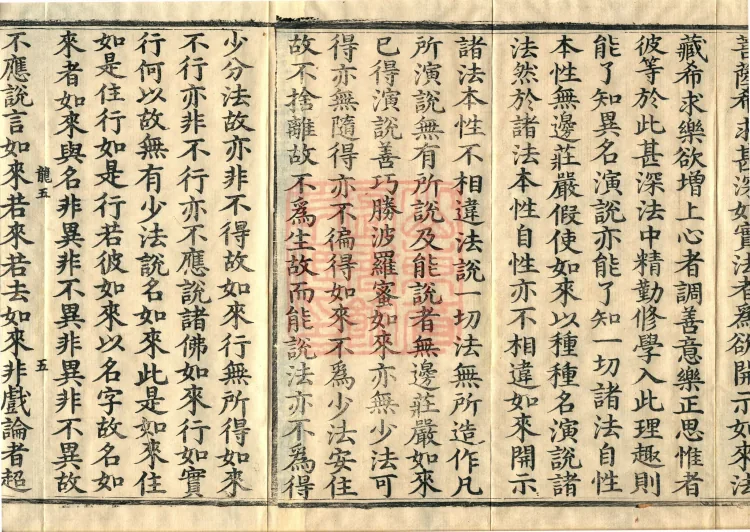 菩薩希求甚深如實法者爲欲開示如來法
藏希求樂欲增上心者調善意樂正思惟者
彼等於此甚深法中精勤修學入此理趣則
能了知異名演說亦能了知一切諸法自性
本性無邊莊嚴假使如來以種種名演說諸
法然於諸法本性自性亦不相違如來開示
諸法本性不相違法說一切法無所造作凡
所演說無有所說及能說者無邊莊嚴如來
已得演說善巧勝波羅蜜如來亦無少法可
得亦無隨得亦不徧得如來不爲少法安住
故不捨離故不爲生故而能說法亦不爲得
少分法故亦非不得故如來行無所得如來
不行亦非不行亦不應說諸佛如來行如實
行何以故無有少法說名如來此是如來住
如是住行如是行若彼如來以名字故名如
來者如來與名非異非不異非異非不異故
龍五 五
不應說言如來若來若去如來非戲論者超